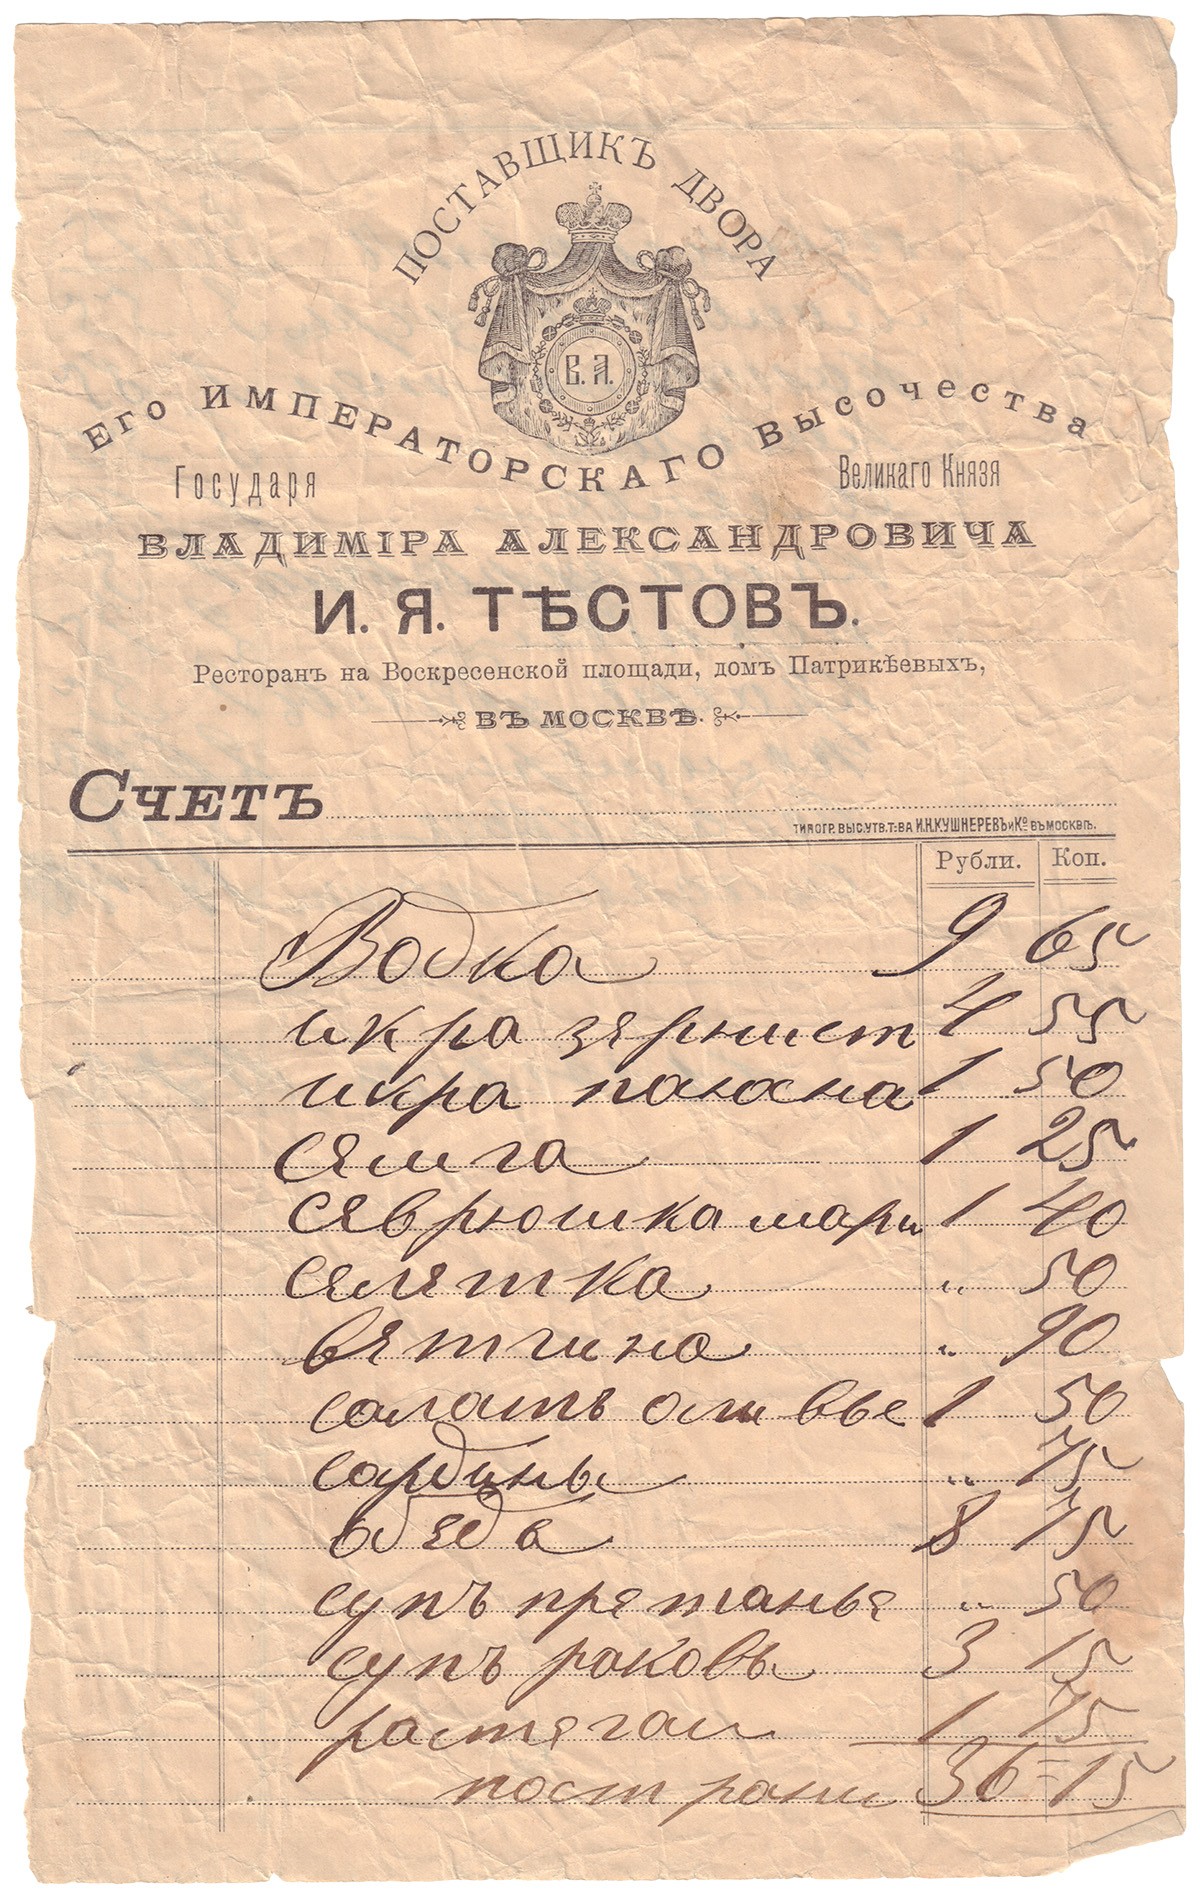 ПОСТАВЩИКЪ ДВОРА
В. А.
ЕГО ИМПЕРАТОРСКАГО ВЫСОЧЕСТВА
Государя Великаго Князя
ВЛАДИМІРА АЛЕКСАНДРОВИЧА
И. Я. ТѢСТОВЪ.
Ресторанъ на Воскресенской площади, домъ Патрикѣевыхъ,
ВЪ МОСКВѢ.
СЧЕТЪ
ТИПОГР. ВЫС. УТВ. Т-ВА И.Н.КУШНЕРЕВЪ и Ко ВЪ МОСКВѢ.
Рубли. Коп.
Водка 9 65
икра зернист 4 55
икра паюсна 1 50
семга 1 25
севрюшка мари 1 40
селетка " 50
ветчина " 90
салатъ оливье 1 50
сардины " 75
обеда 8 75
супъ претанье " 50
супъ раковъ 3 15
растегаи 1 75
пост рани 36=15